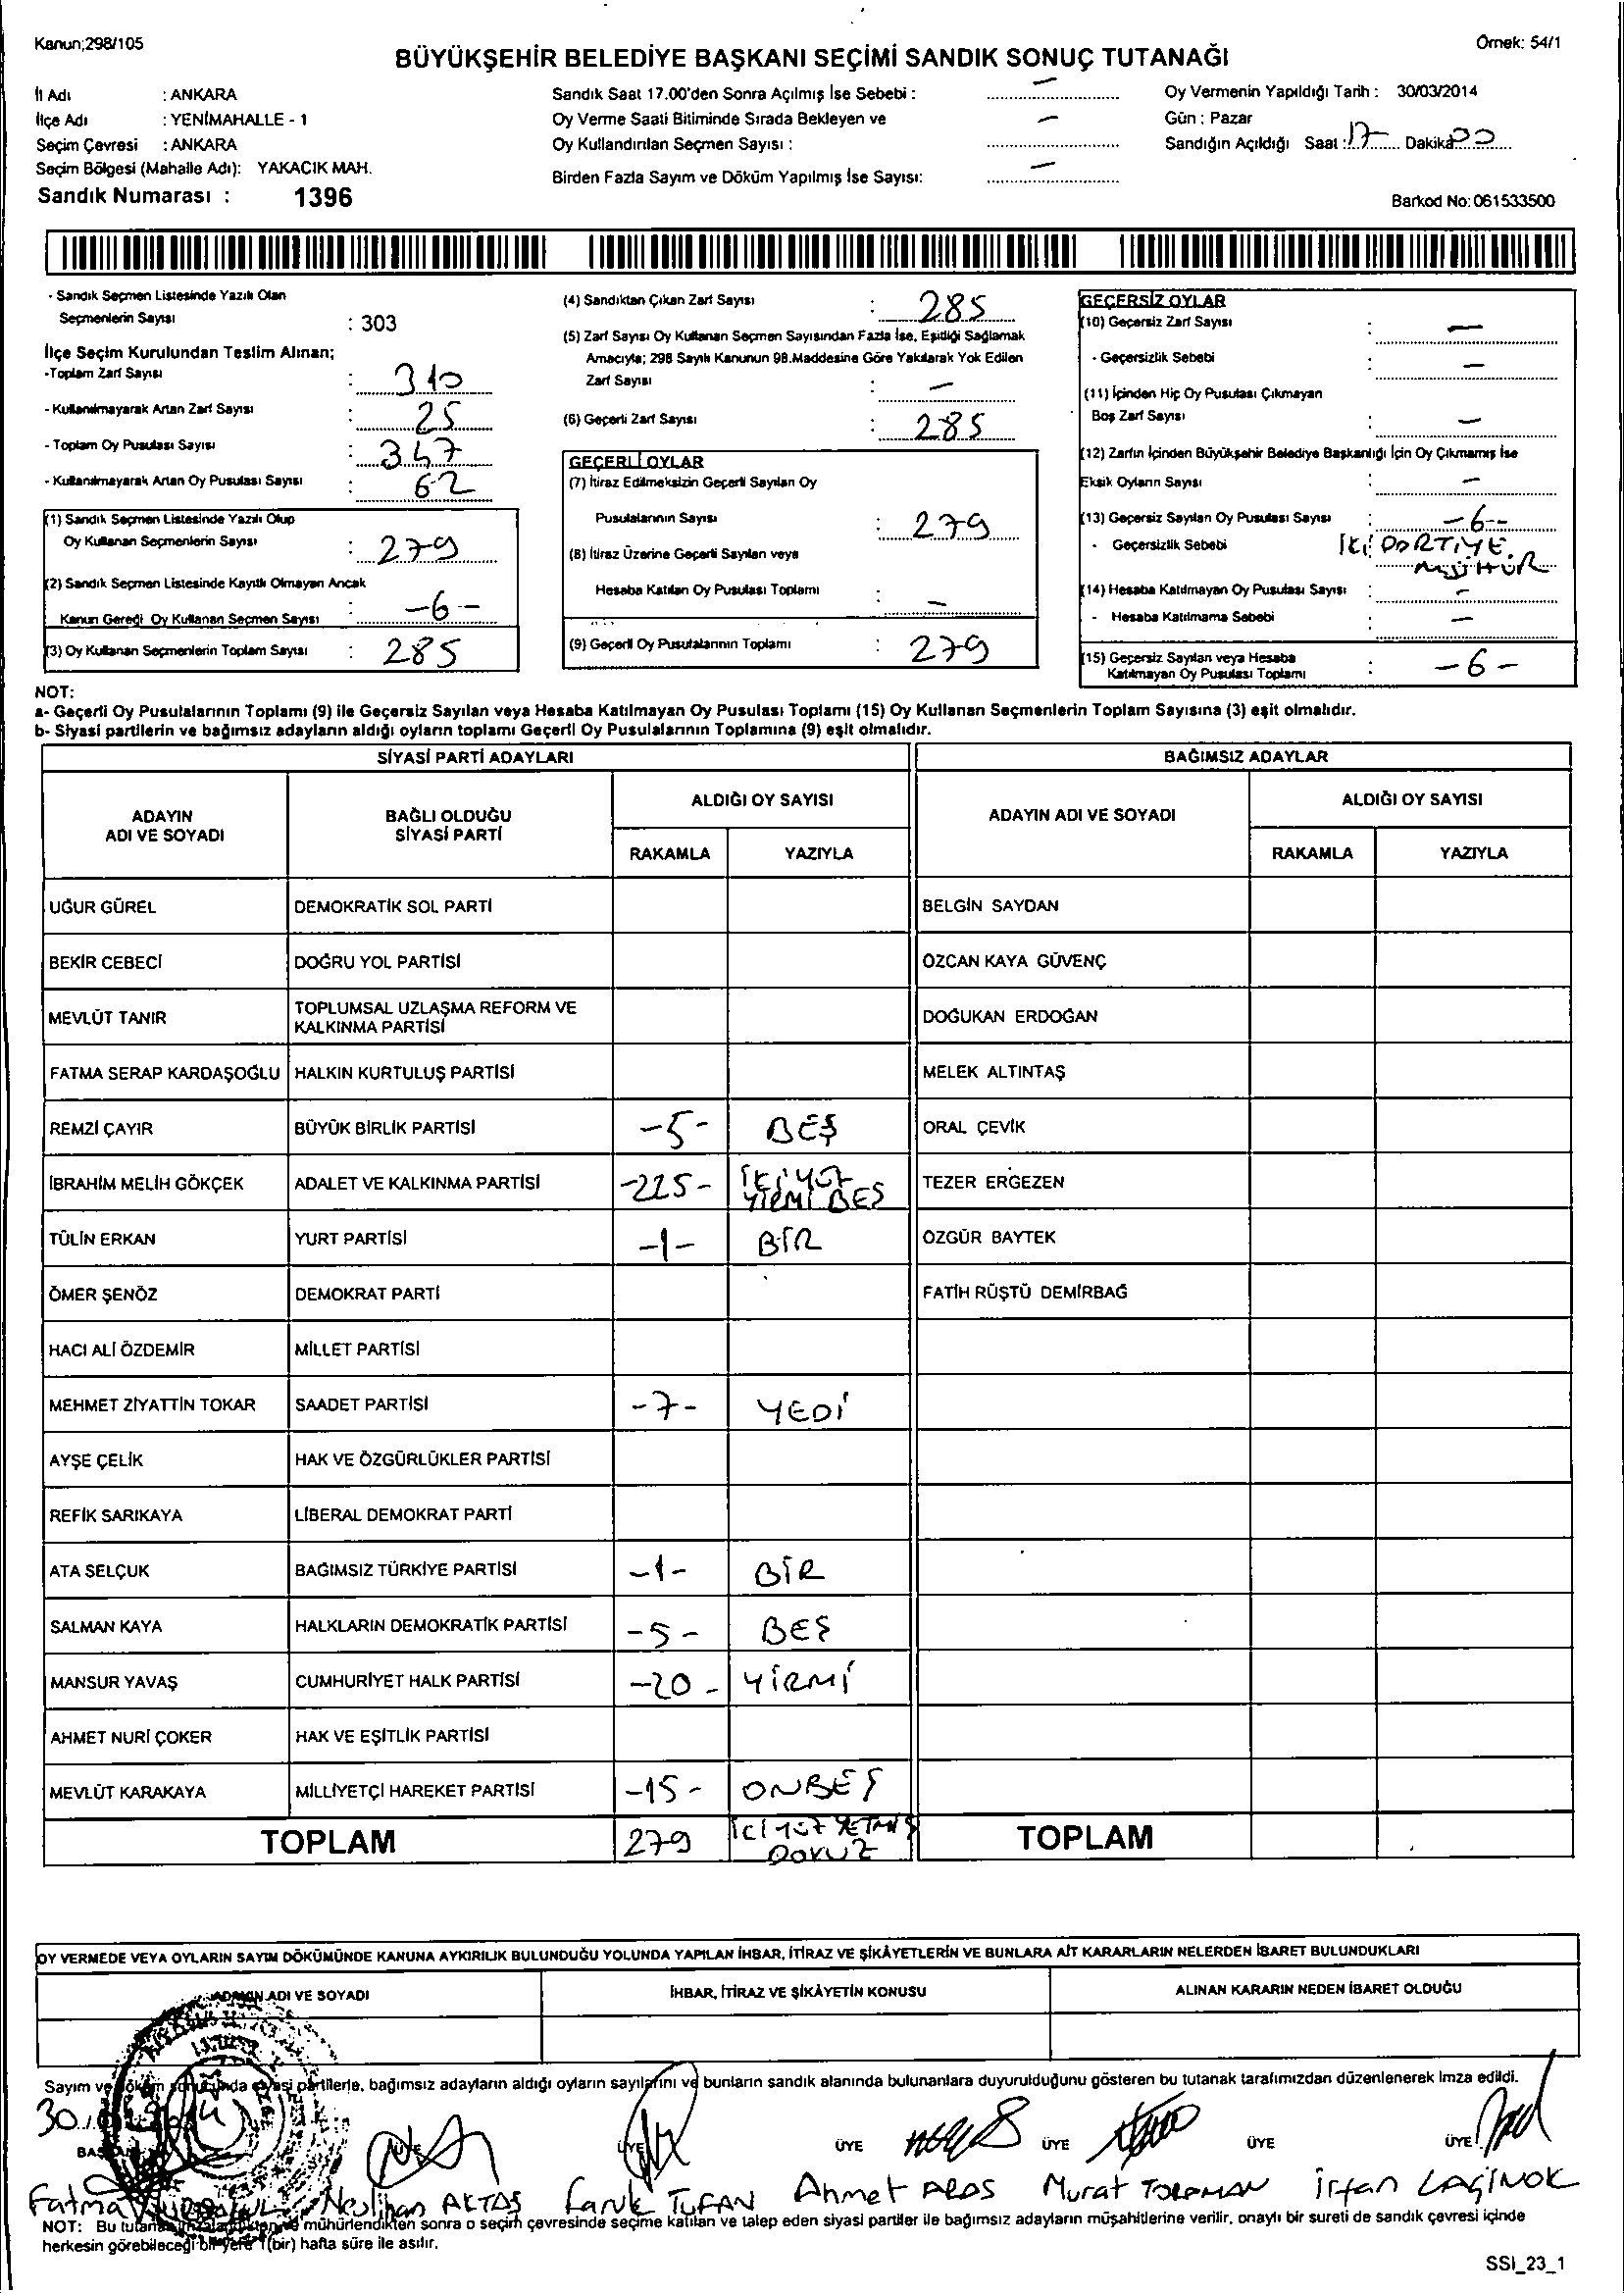 Kanun;298/105
Örnek: 54/1
BÜYÜKŞEHİR BELEDİYE BAŞKANI SEÇİMİ SANDIK SONUÇ TUTANAĞI
İl Adı : ANKARA
İlçe Adı : YENİMAHALLE - 1
Seçim Çevresi : ANKARA
Seçim Bölgesi (Mahalle Adı): YAKACIK MAH.
Sandık Numarası : 1396
Sandık Saat 17.00'den Sonra Açılmış İse Sebebi : —
Oy Verme Saati Bitiminde Sırada Bekleyen ve
Oy Kullandırılan Seçmen Sayısı : —
Birden Fazla Sayım ve Döküm Yapılmış İse Sayısı: —
Oy Vermenin Yapıldığı Tarih : 30/03/2014
Gün : Pazar
Sandığın Açıldığı Saat : 17 Dakika
Barkod No: 061533500
- Sandık Seçmen Listesinde Yazılı Olan
Seçmenlerin Sayısı : 303
İlçe Seçim Kurulundan Teslim Alınan;
-Toplam Zarf Sayısı : 310
- Kullanılmayarak Artan Zarf Sayısı : 25
- Toplam Oy Pusulası Sayısı : 347
- Kullanılmayarak Artan Oy Pusulası Sayısı : 62
(1) Sandık Seçmen Listesinde Yazılı Olup
Oy Kullanan Seçmenlerin Sayısı : 279
(2) Sandık Seçmen Listesinde Kayıtlı Olmayan Ancak
Kanun Gereği Oy Kullanan Seçmen Sayısı : -6-
(3) Oy Kullanan Seçmenlerin Toplam Sayısı : 285
(4) Sandıktan Çıkan Zarf Sayısı : 285
(5) Zarf Sayısı Oy Kullanan Seçmen Sayısından Fazla İse, Eşitliği Sağlamak
Amacıyla; 298 Sayılı Kanunun 98.Maddesine Göre Yakılarak Yok Edilen
Zarf Sayısı : —
(6) Geçerli Zarf Sayısı : 285
GEÇERLİ OYLAR
(7) İtiraz Edilmeksizin Geçerli Sayılan Oy
Pusulalarının Sayısı : 279
(8) İtiraz Üzerine Geçerli Sayılan veya
Hesaba Katılan Oy Pusulası Toplamı : —
(9) Geçerli Oy Pusulalarının Toplamı : 279
GEÇERSİZ OYLAR
(10) Geçersiz Zarf Sayısı : —
- Geçersizlik Sebebi : —
(11) İçinden Hiç Oy Pusulası Çıkmayan
Boş Zarf Sayısı : —
(12) Zarfın İçinden Büyükşehir Belediye Başkanlığı İçin Oy Çıkmamış İse
Eksik Oyların Sayısı : —
(13) Geçersiz Sayılan Oy Pusulası Sayısı : -6--
- Geçersizlik Sebebi : İKİ PARTİYE
MÜHÜR
(14) Hesaba Katılmayan Oy Pusulası Sayısı : —
- Hesaba Katılmama Sebebi : —
(15) Geçersiz Sayılan veya Hesaba
Katılmayan Oy Pusulası Toplamı : -6-
NOT:
a- Geçerli Oy Pusulalarının Toplamı (9) ile Geçersiz Sayılan veya Hesaba Katılmayan Oy Pusulası Toplamı (15) Oy Kullanan Seçmenlerin Toplam Sayısına (3) eşit olmalıdır.
b- Siyasi partilerin ve bağımsız adayların aldığı oyların toplamı Geçerli Oy Pusulalarının Toplamına (9) eşit olmalıdır.
SİYASİ PARTİ ADAYLARI BAĞIMSIZ ADAYLAR
ADAYIN ADI VE SOYADI BAĞLI OLDUĞU SİYASİ PARTİ ALDIĞI OY SAYISI ADAYIN ADI VE SOYADI ALDIĞI OY SAYISI
RAKAMLA YAZIYLA RAKAMLA YAZIYLA
UĞUR GÜREL DEMOKRATİK SOL PARTİ BELGİN SAYDAN
BEKİR CEBECİ DOĞRU YOL PARTİSİ ÖZCAN KAYA GÜVENÇ
MEVLÜT TANIR TOPLUMSAL UZLAŞMA REFORM VE KALKINMA PARTİSİ DOĞUKAN ERDOĞAN
FATMA SERAP KARDAŞOĞLU HALKIN KURTULUŞ PARTİSİ MELEK ALTINTAŞ
REMZİ ÇAYIR BÜYÜK BİRLİK PARTİSİ -5- BEŞ ORAL ÇEVİK
İBRAHİM MELİH GÖKÇEK ADALET VE KALKINMA PARTİSİ -225- İKİYÜZ YİRMİ BEŞ TEZER ERGEZEN
TÜLİN ERKAN YURT PARTİSİ -1- BİR ÖZGÜR BAYTEK
ÖMER ŞENÖZ DEMOKRAT PARTİ FATİH RÜŞTÜ DEMİRBAĞ
HACI ALİ ÖZDEMİR MİLLET PARTİSİ
MEHMET ZİYATTİN TOKAR SAADET PARTİSİ -7- YEDİ
AYŞE ÇELİK HAK VE ÖZGÜRLÜKLER PARTİSİ
REFİK SARIKAYA LİBERAL DEMOKRAT PARTİ
ATA SELÇUK BAĞIMSIZ TÜRKİYE PARTİSİ -1- BİR
SALMAN KAYA HALKLARIN DEMOKRATİK PARTİSİ -5- BEŞ
MANSUR YAVAŞ CUMHURİYET HALK PARTİSİ -20- YİRMİ
AHMET NURİ ÇOKER HAK VE EŞİTLİK PARTİSİ
MEVLÜT KARAKAYA MİLLİYETÇİ HAREKET PARTİSİ -15- ONBEŞ
TOPLAM 279 İKİ YÜZ YETMİŞ DOKUZ TOPLAM
OY VERMEDE VEYA OYLARIN SAYIM DÖKÜMÜNDE KANUNA AYKIRILIK BULUNDUĞU YOLUNDA YAPILAN İHBAR, İTİRAZ VE ŞİKÂYETLERİN VE BUNLARA AİT KARARLARIN NELERDEN İBARET BULUNDUKLARI
ADI VE SOYADI İHBAR, İTİRAZ VE ŞİKÂYETİN KONUSU ALINAN KARARIN NEDEN İBARET OLDUĞU
Sayım ve döküm sonucunda siyasi partilerle, bağımsız adayların aldığı oyların sayılarını ve bunların sandık alanında bulunanlara duyurulduğunu gösteren bu tutanak tarafımızdan düzenlenerek imza edildi.
30
ÜYE ÜYE ÜYE ÜYE ÜYE ÜYE
Fatma Neslihan AKTAŞ Faruk TUFAN Ahmet Murat İrfan LAÇINOK
NOT: Bu mühürlendikten sonra o seçim çevresinde seçime katılan ve talep eden siyasi partiler ile bağımsız adayların müşahitlerine verilir, onaylı bir sureti de sandık çevresi içinde
herkesin görebileceği bir yere 1(bir) hafta süre ile asılır.
SSI_23_1